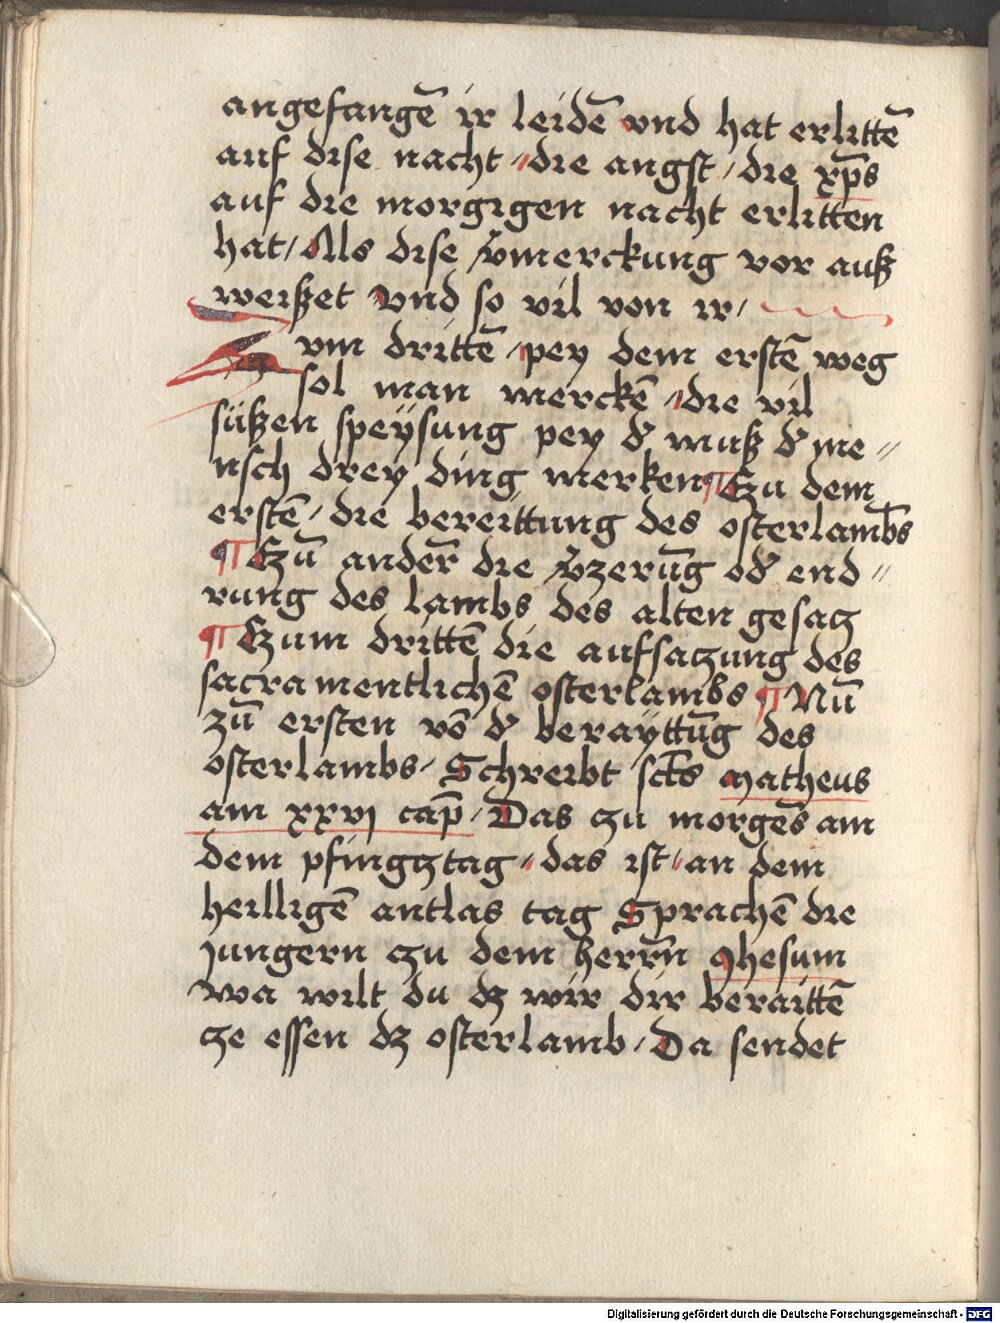 angefangē ir leidē vnd hat erlittē
auf dise nacht / die angst / die xp̄s
auf die morgigen nacht erlitten
hat / Als dise v̄merckung vor auß
weißet vnd so vil von ir /
Zum drittē / pey dem erstē weg
sol man merckē / die vil
süßen speÿsung pey d̕ muß d̕ me〃
nsch drey ding merken ¶ Zu dem
erstē / die bereittung des osterlambs
¶ Zū anderr̄ die v̄zerūg od̕ end〃
rung des lambs des alten gesacz
¶ Zum drittē die aufsaczung des
sacramentlichē osterlambs ¶ Nū
zū ersten vō d̕ beraÿttūg des
osterlambs / Schreibt sct̄s Matheus
am xxvi cap̄ / Das czu morgēs am
dem pfingcztag / das ist / an dem
heilligē antlas tag Sprachē die
jungern czu dem herrn̄ Jhesum
wa wilt du dz wir dir beraittē
cze essen dz osterlamb / Da sendet
Digitalisierung gefördert durch die Deutsche Forschungsgemeinschaft - DFG